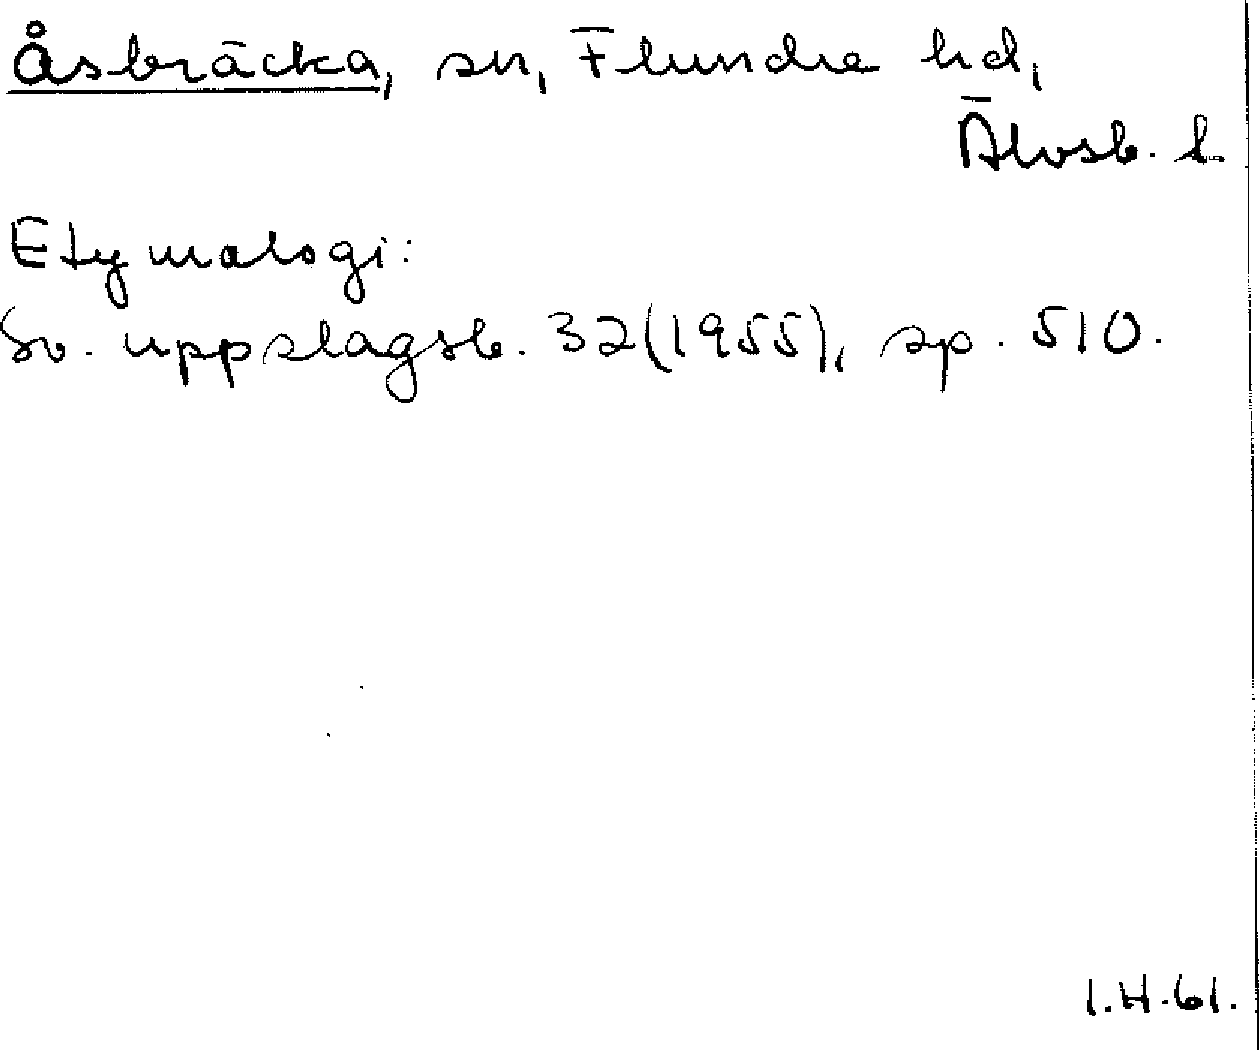 Åsbräcka, sn, Flundre hd,
Älvsb. l.
Etymologi:
Sv. uppslagsb. 32(1955), sp. 510.
I.H.61.